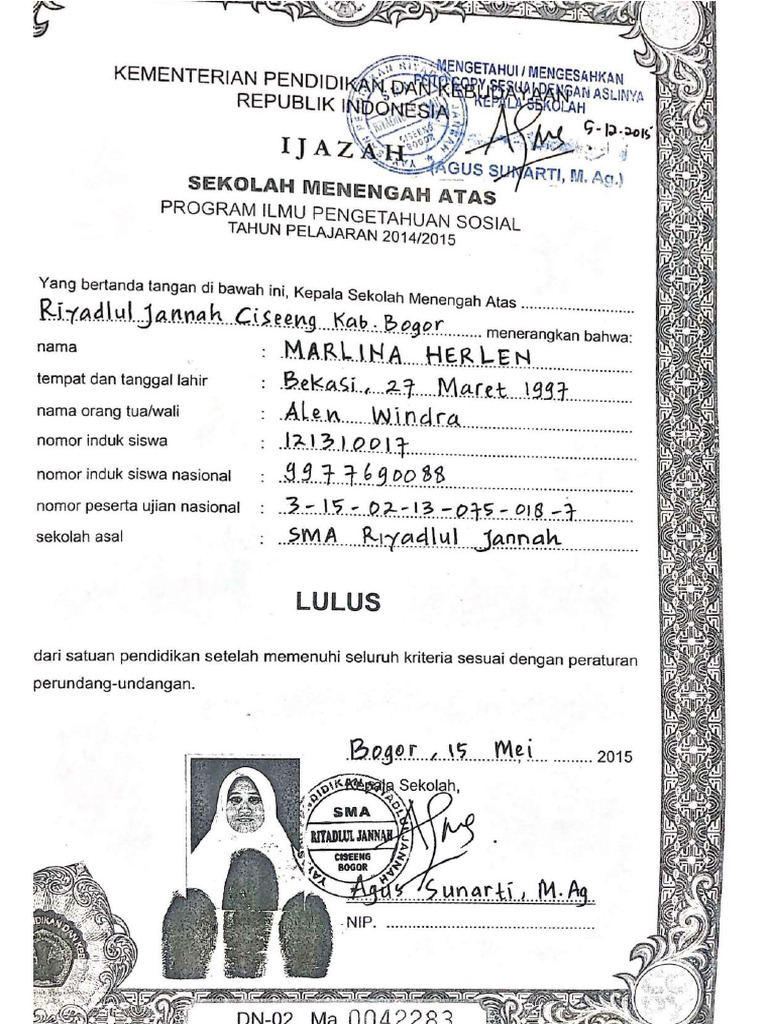 KEMENTERIAN PENDIDIKAN DAN KEBUDAYAAN
REPUBLIK INDONESIA
MENGETAHUI / MENGESAHKAN
FOTO COPY SESUAI DENGAN ASLINYA
KEPALA SEKOLAH
5-12-2015
(AGUS SUNARTI, M. Ag.)
IJAZAH
SEKOLAH MENENGAH ATAS
PROGRAM ILMU PENGETAHUAN SOSIAL
TAHUN PELAJARAN 2014/2015
Yang bertanda tangan di bawah ini, Kepala Sekolah Menengah Atas
Riyadlul Jannah Ciseeng Kab. Bogor menerangkan bahwa:
nama : MARLINA HERLEN
tempat dan tanggal lahir : Bekasi, 27 Maret 1997
nama orang tua/wali : Alen Windra
nomor induk siswa : 121310017
nomor induk siswa nasional : 9977690088
nomor peserta ujian nasional : 3-15-02-13-075-018-7
sekolah asal : SMA Riyadlul Jannah
LULUS
dari satuan pendidikan setelah memenuhi seluruh kriteria sesuai dengan peraturan
perundang-undangan.
Bogor, 15 Mei 2015
Kepala Sekolah,
SMA
RIYADLUL JANNAH
CISEENG
BOGOR
Agus Sunarti, M.Ag
NIP.
DN-02 Ma 0042283